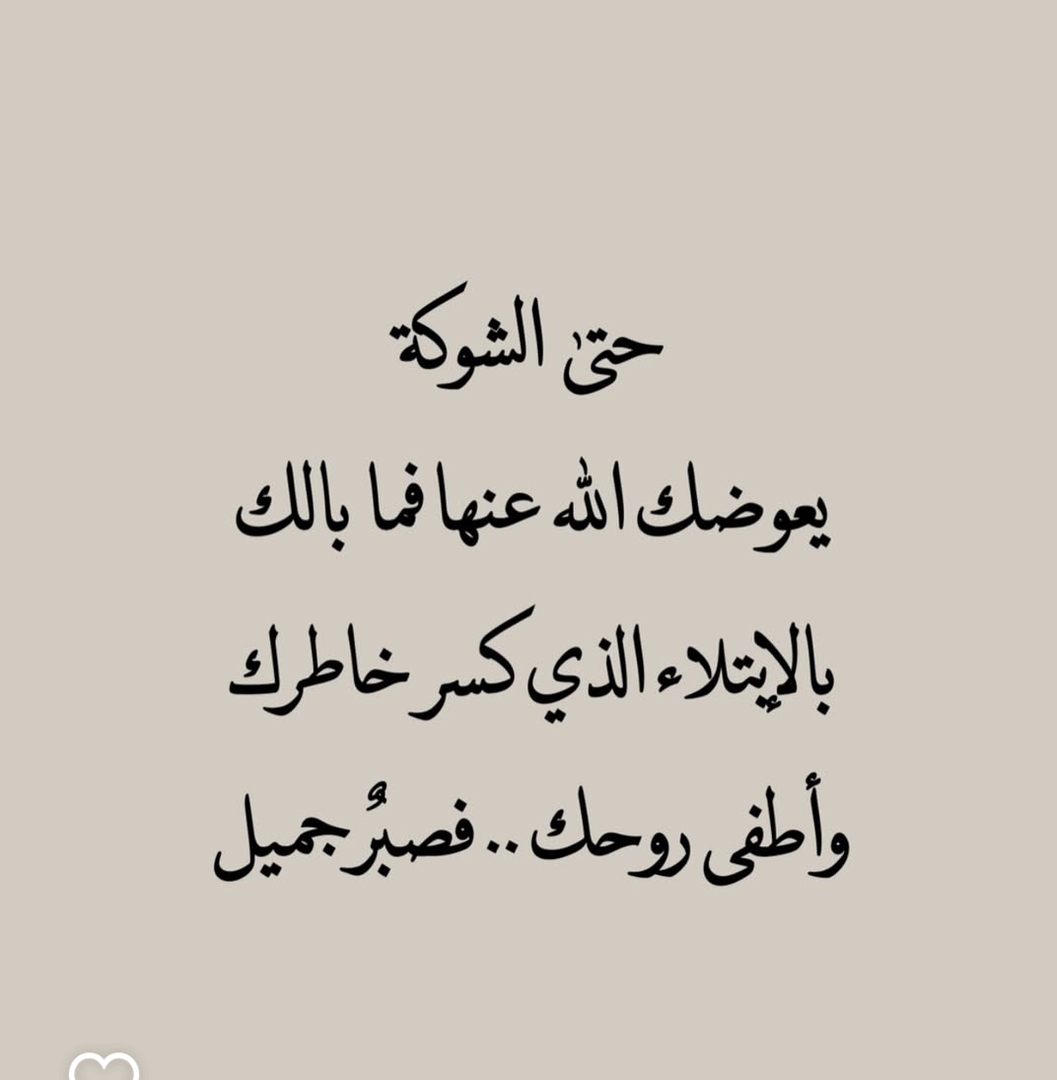 حتىٰ الشوكة
يعوضك الله عنها فما بالك
بالإبتلاء الذي كسر خاطرك
وأطفى روحك .. فصبرٌ جميل